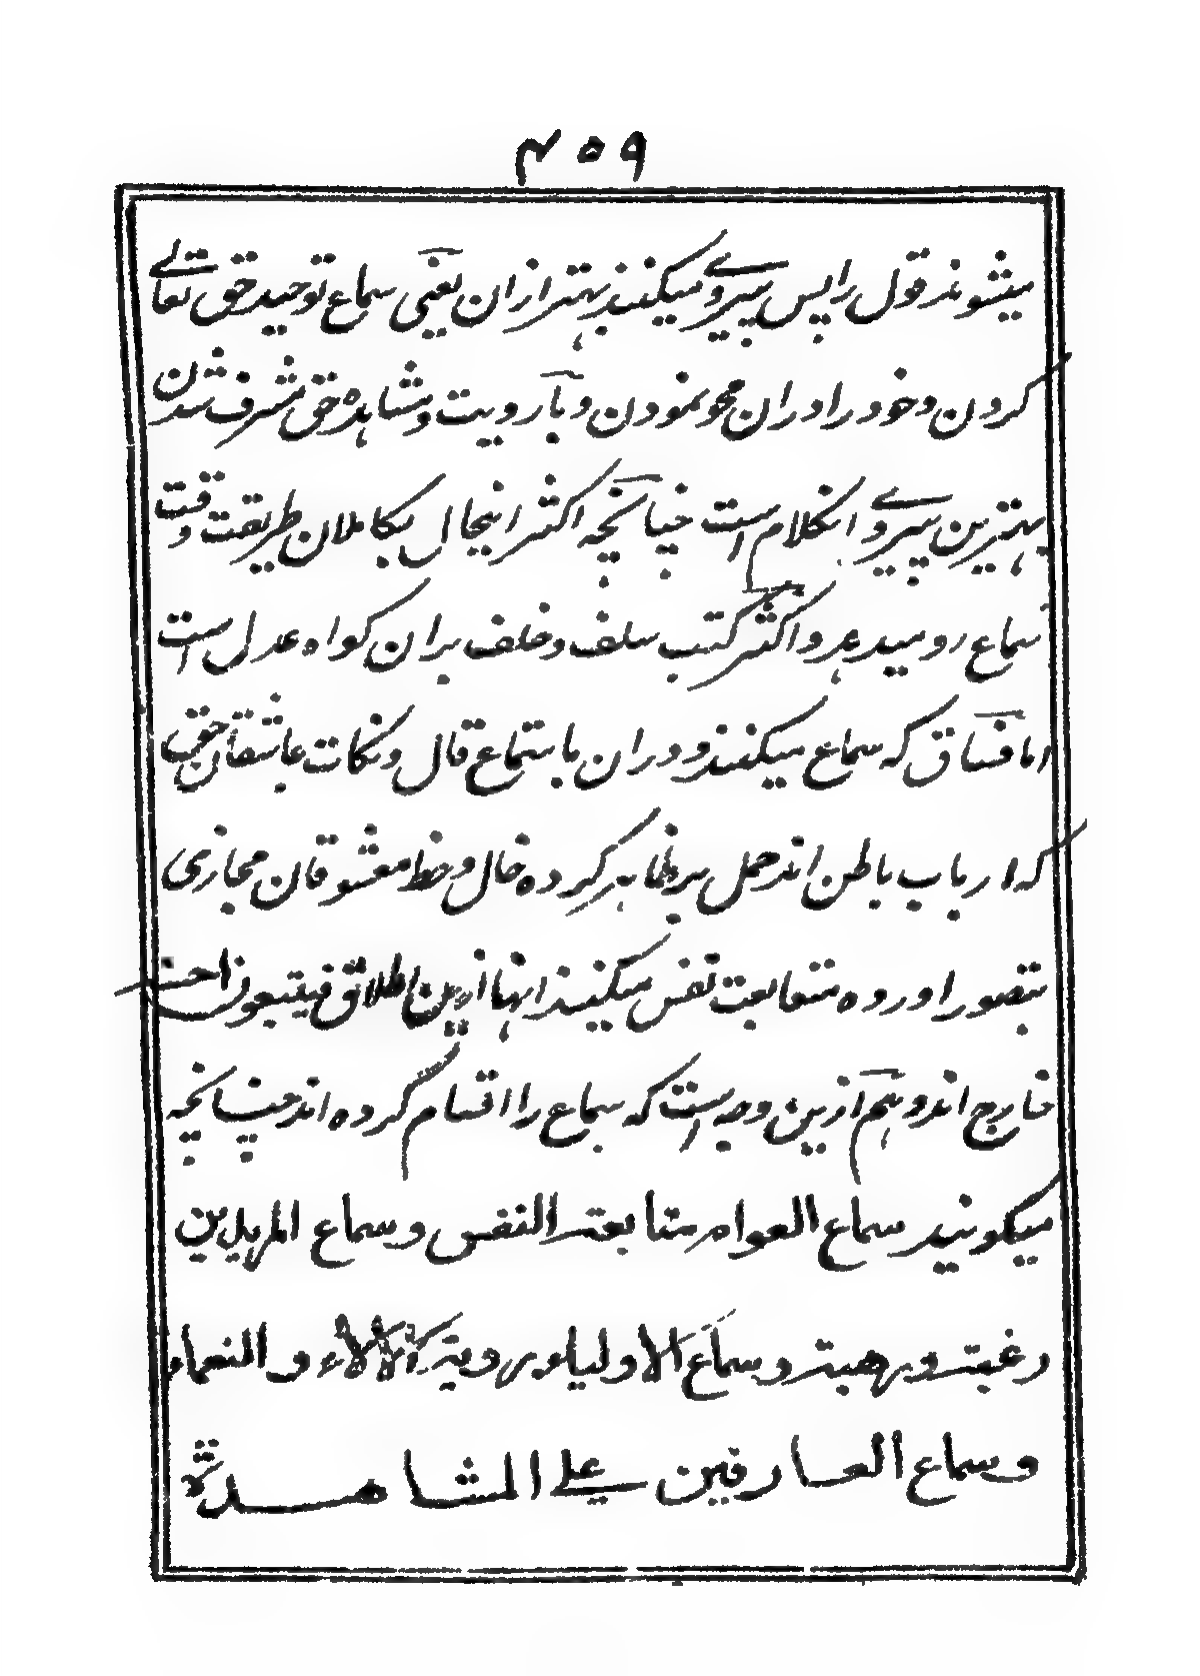 ۴۵۹
میشوند قول را پس پیروے میکنند بهتر ازان یعنی سماع توحید حق تعالے
کردن و خود را دران محو نمودن و بآ رویت و مشاهده حق مشرف شدن
بهترین پیروے انکلام است چنانچه اکثر اینحال بکاملان طریقت وقت
سماع رو میدهد و اکثر کتب سلف و خلف بران کواه عدل است
اما فساق که سماع میکنند و دران باستماع قال و نکات عاشقان حق
که ارباب باطن اند حمل بر ظاهر کرده خال و خط معشوقان مجازی
بتصور اورده متابعت نفس میکنند اینها ازین اطلاق فیتبعون احسنه
خارج اند و هم ازین وجه است که سماع را اقسام کرده اند چنانچه
میکویند سماع العوام متابعة النفس و سماع المریدین
رغبة و رهبة و سماع الاولیاء رویة الآلاء و النعماء
و سماع العارفین علے المشاهدة